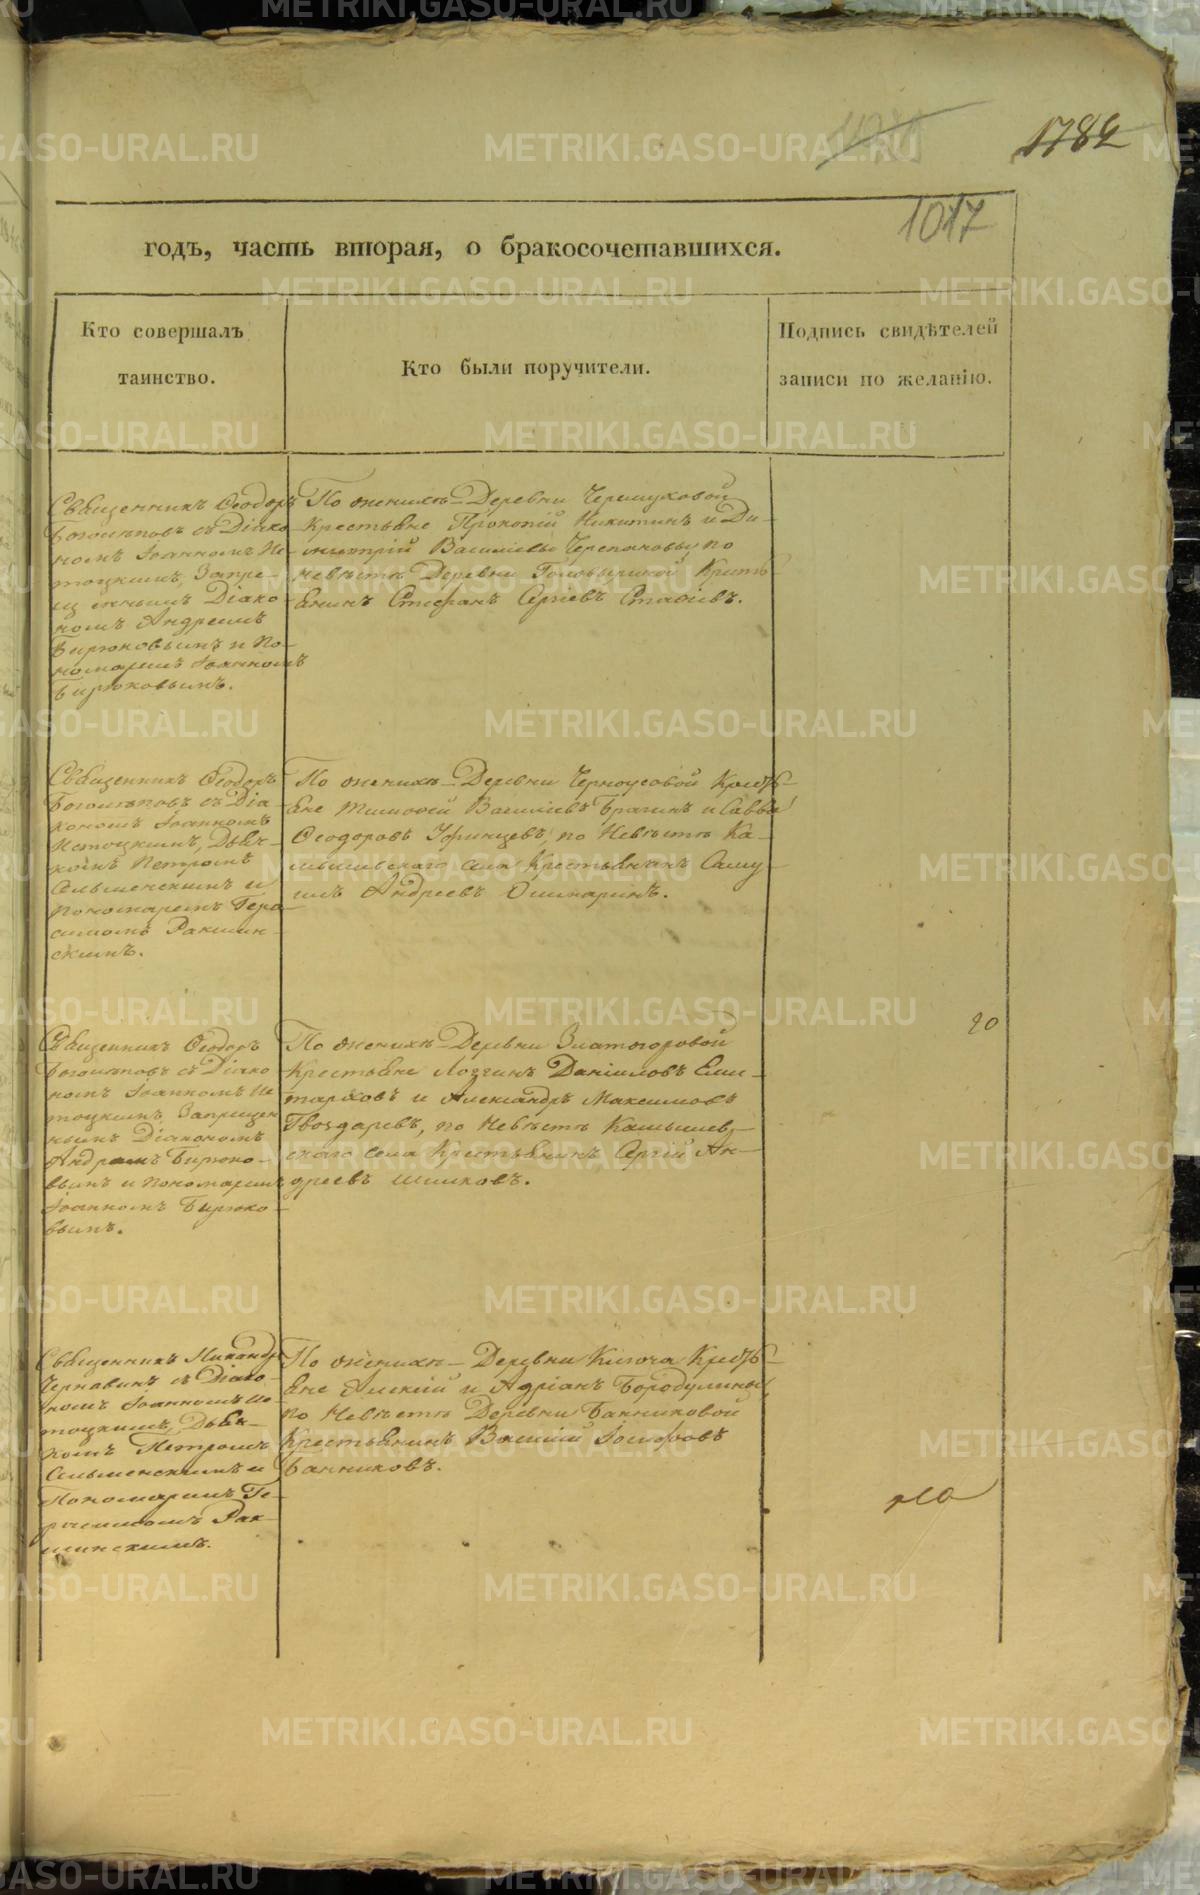 1782
1017
годъ, часть вторая, о бракосочетавшихся.
Кто совершалъ
таинство.
Кто были поручители.
Подпись свидѣтелей
записи по желанію.
Священникъ Ѳеодоръ
Боголѣповъ съ Діако-
номъ Іоанномъ Ис-
тоцкимъ, Запре-
щеннымъ Діако-
номъ Андреемъ
Бирюковымъ и По-
номаремъ Іоанномъ
Бирюковымъ.
По женихѣ – Деревни Черемуховой
Крестьяне Прокопій Никитинъ и Ди-
митрій Васильевы Черепановы, по
невѣстѣ Деревни Головыриной Кресть
янинъ Стефанъ Сергіевъ
Священникъ Ѳеодоръ
Боголѣповъ съ Діа-
кономъ Іоанномъ
Истоцкимъ, Дьяч-
комъ Петромъ
и
Пономаремъ Гера-
симомъ Ракшин-
скимъ.
По женихѣ – Деревни Черноусовой Кресть-
яне Тимофей Васильевъ Брагинъ и Савва
Ѳеодоровъ Уфинцевъ, по Невѣстѣ Ка-
мышевскаго села Крестьянинъ Саму-
илъ Андреевъ
20
Священникъ Ѳеодоръ
Боголѣповъ съ Діако-
номъ Іоанномъ Ис
тоцкимъ, Запрещен
нымъ Діакономъ
Андреемъ Бирюко-
вымъ и Пономаремъ
Іоанномъ Бирюко-
вымъ.
По женихѣ – Деревни Златогоровой
Крестьяне Логгинъ Даніиловъ Епи-
мáховъ и Александръ Максимовъ
Гвоздаревъ, по Невѣстѣ Камышев-
скаго села Крестьянинъ Сергій Ан-
дреевъ Шишковъ.
Священникъ Никандръ
Чернавинъ съ Діако-
номъ Іоанномъ Ис-
тоцкимъ, Дьяч-
комъ Петромъ
и
Пономаремъ Ге-
расимомъ Рак-
шинскимъ.
По женихѣ – Деревни Ключа Кресть-
яне Алексій и Адріанъ Бородулины,
по Невѣстѣ Деревни Банниковой
Крестьянинъ Василій Іосифовъ
Банниковъ.
METRIKI.GASO-URAL.RU